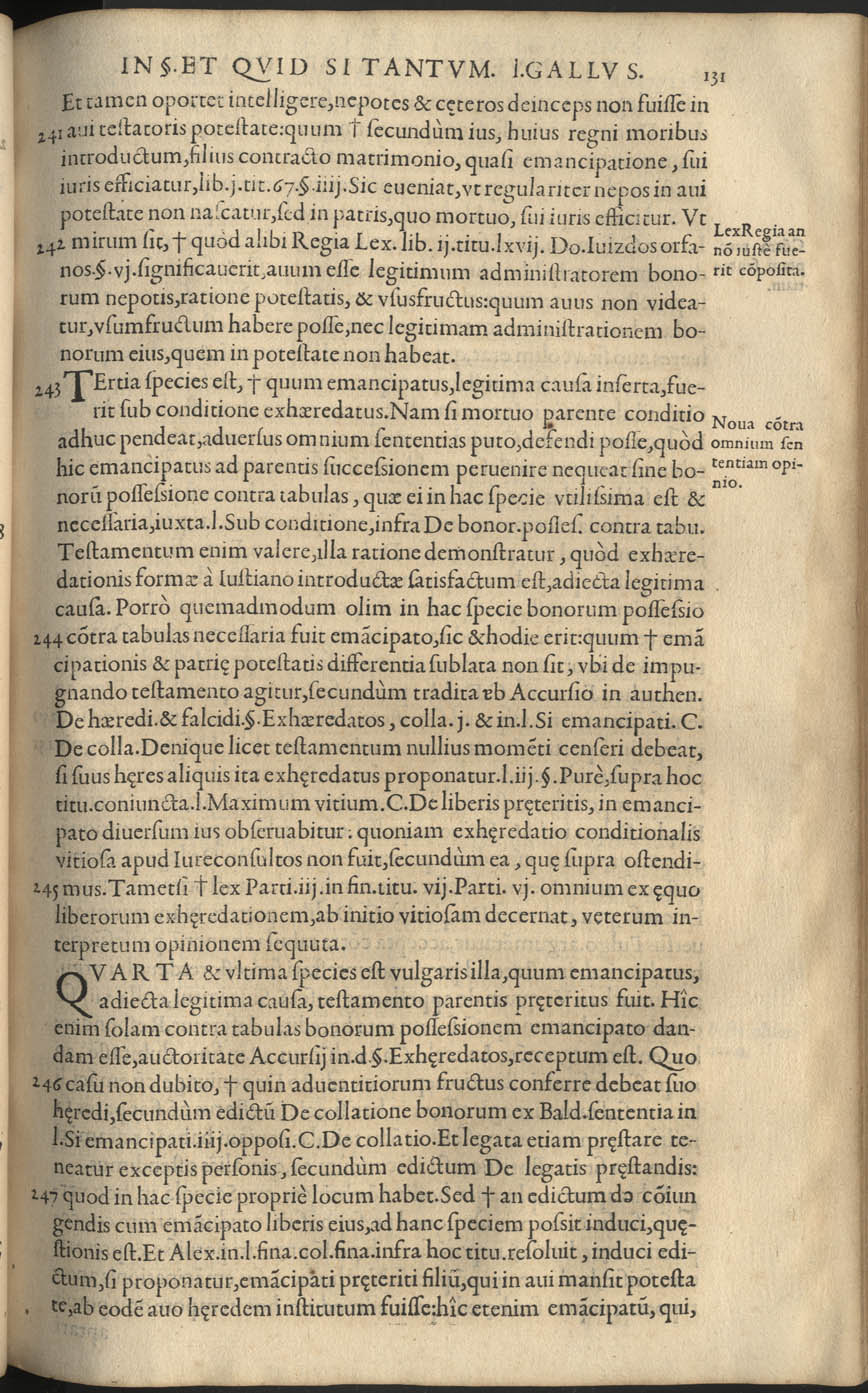 IN §. ET QVID SI TANTVM. l. GALLVS. 131
Et tamen oportet intelligere, nepotes & cęteros deinceps non fuiſſe in
241 aui teſtatoris poteſtate: quum † ſecundùm ius, huius regni moribus
introductum, filius contracto matrimonio, quaſi emancipatione, ſui
iuris efficiatur, lib. j. tit. 67. §. iiij. Sic eueniat, vt regulariter nepos in aui
poteſtate non naſcatur, ſed in patris, quo mortuo, ſui iuris efficitur. Vt
242 mirum ſit, † quòd alibi Regia Lex. lib. ij. titu. lxvij. Do. Iuizdos orfa-
nos. §. vj. ſignificauerit, auum eſſe legitimum adminiſtratorem bono-
rum nepotis, ratione poteſtatis, & vſusfructus: quum auus non videa-
tur, vſumfructum habere poſſe, nec legitimam adminiſtrationem bo-
norum eius, quem in poteſtate non habeat.
Lex Regia an
nõ iuſtè fue-
rit cõpoſita.
243 TErtia ſpecies eſt, † quum emancipatus, legitima cauſa inſerta, fue-
rit ſub conditione exhæredatus. Nam ſi mortuo parente conditio
adhuc pendeat, aduerſus omnium ſententias puto, defendi poſſe, quòd
hic emancipatus ad parentis ſucceſsionem peruenire nequeat ſine bo-
norũ poſſeſsione contra tabulas, quæ ei in hac ſpecie vtiliſsima eſt &
neceſſaria, iuxta. l. Sub conditione, infra De bonor. poſſeſ. contra tabu.
Teſtamentum enim valere, illa ratione demonſtratur, quòd exhære-
dationis formæ à Iuſtiano introductæ ſatisfactum eſt, adiecta legitima
cauſa. Porrò quemadmodum olim in hac ſpecie bonorum poſſeſsio
244 cõtra tabulas neceſſaria fuit emãcipato, ſic & hodie erit: quum † emã
cipationis & patrię poteſtatis differentia ſublata non ſit, vbi de impu-
gnando teſtamento agitur, ſecundùm tradita ab Accurſio in authen.
De hæredi. & falcidi. §. Exhæredatos, colla. j. & in. l. Si emancipati. C.
De colla. Denique licet teſtamentum nullius momẽti cenſeri debeat,
ſi ſuus hęres aliquis ita exhęredatus proponatur. l. iij. §. Purè, ſupra hoc
titu. coniuncta. l. Maximum vitium. C. De liberis pręteritis, in emanci-
pato diuerſum ius obſeruabitur: quoniam exhęredatio conditionalis
vitioſa apud Iureconſultos non fuit, ſecundùm ea, quę ſupra oſtendi-
245 mus. Tametſi † lex Parti. iij. in fin. titu. vij. Parti. vj. omnium ex ęquo
liberorum exhęredationem, ab initio vitioſam decernat, veterum in-
terpretum opinionem ſequuta.
Noua cõtra
omnium ſen
tentiam opi-
nio.
QVARTA & vltima ſpecies eſt vulgaris illa, quum emancipatus,
adiecta legitima cauſa, teſtamento parentis pręteritus fuit. Hîc
enim ſolam contra tabulas bonorum poſſeſsionem emancipato dan-
dam eſſe, auctoritate Accurſij in. d. §. Exhęredatos, receptum eſt. Quo
246 caſu non dubito, † quin aduentitiorum fructus conferre debeat ſuo
hęredi, ſecundùm edictũ De collatione bonorum ex Bald. ſententia in
l. Si emancipati. iiij. oppoſi. C. De collatio. Et legata etiam pręſtare te-
neatur exceptis perſonis, ſecundùm edictum De legatis pręſtandis:
247 quod in hac ſpecie propriè locum habet. Sed † an edictum de cõiun
gendis cum emãcipato liberis eius, ad hanc ſpeciem poſsit induci, quę-
ſtionis eſt. Et Alex. in. l. fina. col. fina. infra hoc titu. reſoluit, induci edi-
ctum, ſi proponatur, emãcipati pręteriti filiũ, qui in aui manſit poteſta
te, ab eodẽ auo hęredem inſtitutum fuiſſe: hîc etenim emãcipatũ, qui,